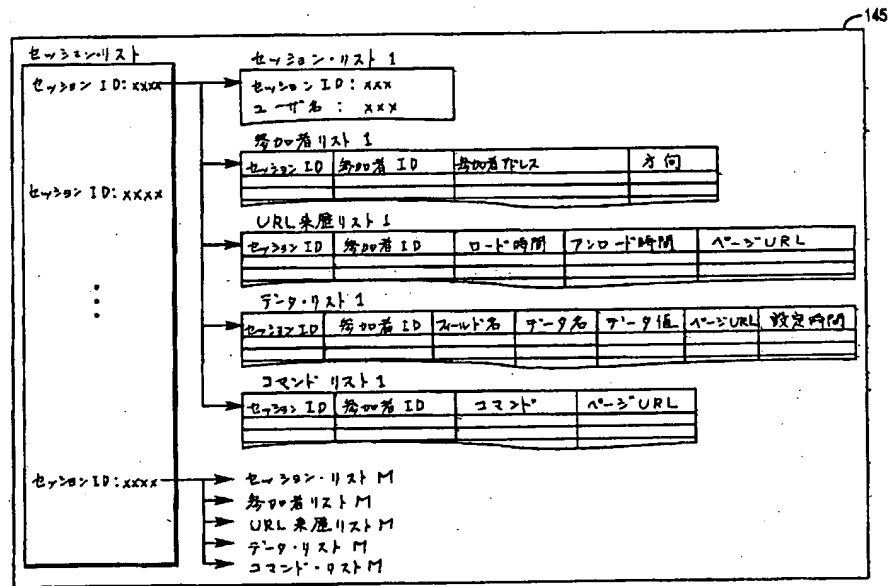 145
セッション・リスト
セッション ID: xxxx
セッション ID: xxxx
セッション ID: xxxx
セッション・リスト 1
セッション ID: xxx
ユーザ名 : xxx
参加者リスト 1
セッション ID 参加者 ID 参加者アドレス 方向
URL 来歴リスト 1
セッション ID 参加者 ID ロード時間 アンロード時間 ページURL
データ・リスト 1
セッション ID 参加者 ID フィールド名 データ名 データ値 ページURL 設定時間
コマンド リスト 1
セッション ID 参加者 ID コマンド ページURL
セッション・リスト M
参加者リスト M
URL 来歴リスト M
データ・リスト M
コマンド・リスト M